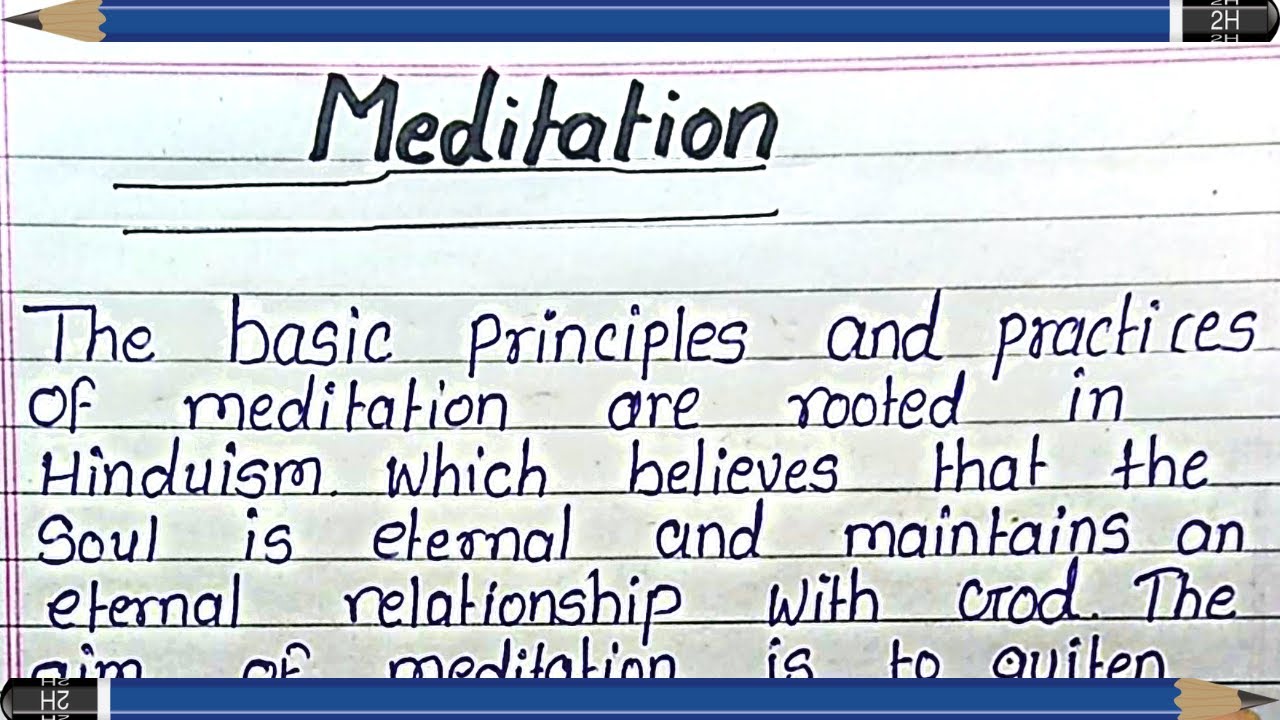 2H
Meditation
The basic principles and practices
of meditation are rooted in
Hinduism. Which believes that the
Soul is eternal and maintains an
eternal relationship with God. The
aim of meditation is to quiten
2H